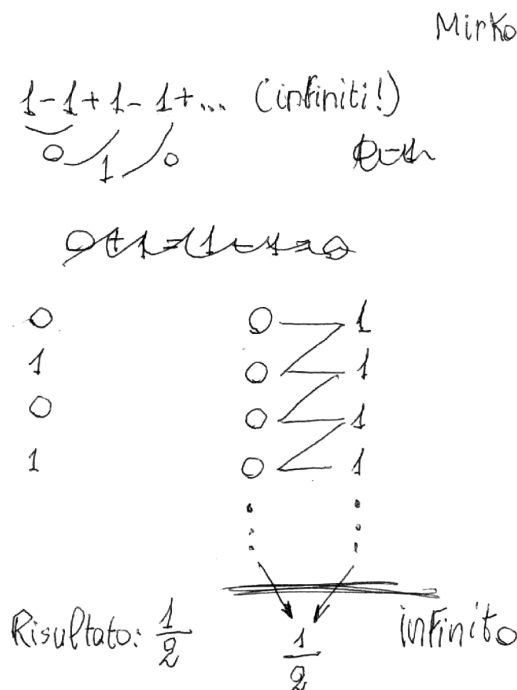 Mirko
1-1+1-1+... (infiniti!)
0 1 0
0+1=1-1=0
0 0 1
1 0 1
0 0 1
1 0 1
Risultato: 1/2 1/2 infinito